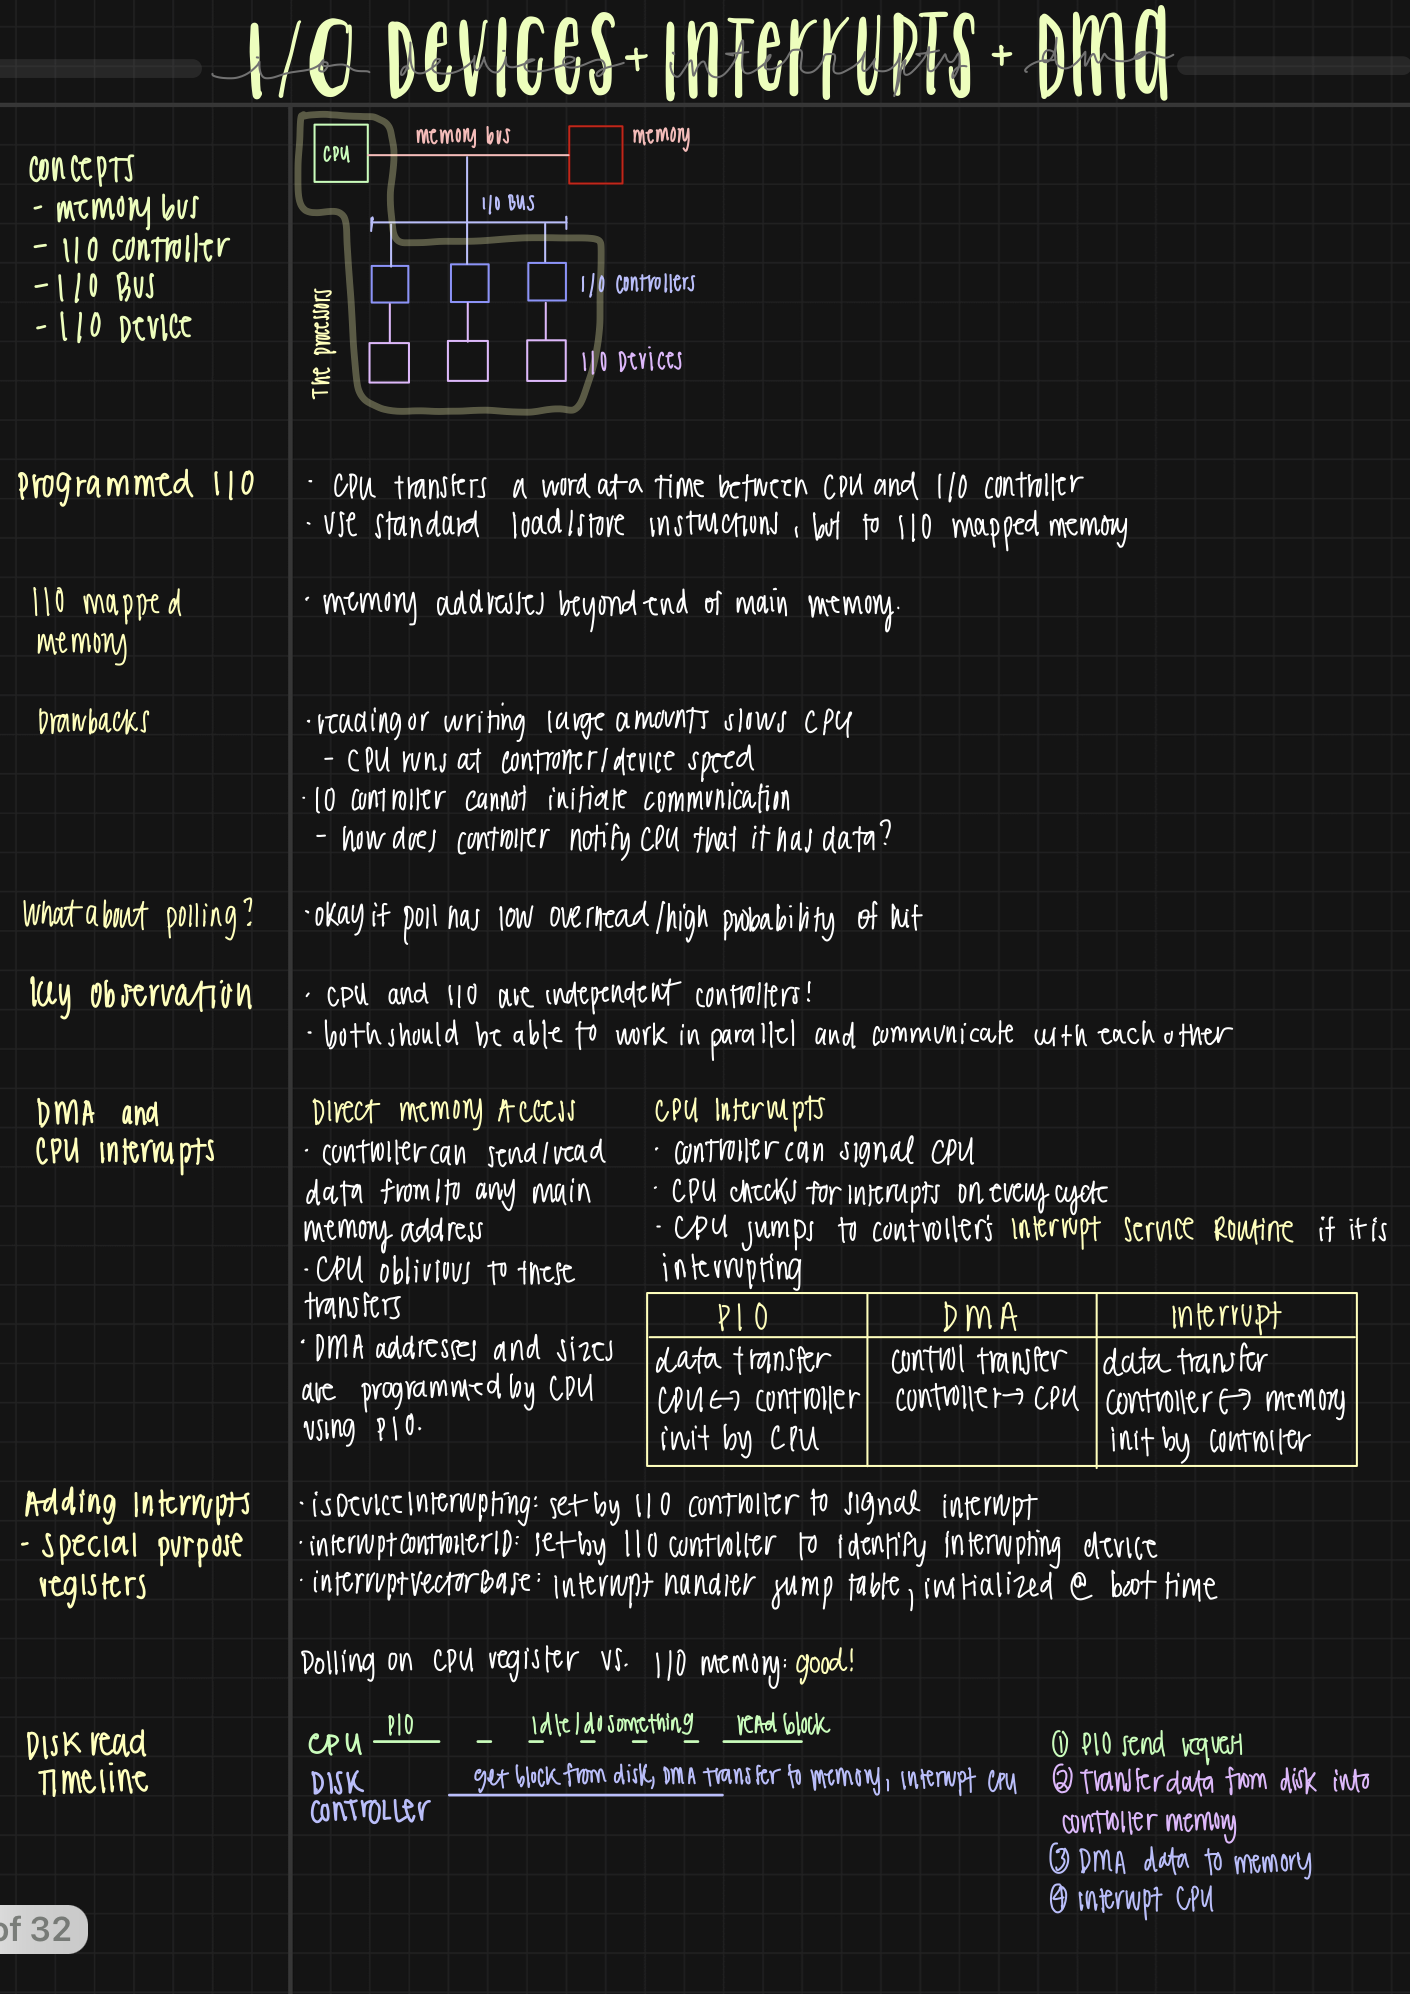 I/O DEVICES + INTERRUPTS + DMA
i/o devices interrupts dma
CONCEPTS
- memory bus
- I/O controller
- I/O BUS
- I/O DEVICE
CPU
memory bus
memory
I/O BUS
I/O controllers
I/O Devices
The processors
Programmed I/O
· CPU transfers a word at a time between CPU and I/O controller
· use standard load/store instuctions, but to I/O mapped memory
I/O mapped
memory
· memory addresses beyond end of main memory.
Drawbacks
· reading or writing large amounts slows CPU
- CPU runs at controller/device speed
· IO controller cannot initiate communication
- how does controller notify CPU that it has data?
What about polling?
· okay if poll has low overhead/high probability of hit
Key observation
· CPU and I/O are independent controllers!
· both should be able to work in parallel and communicate with each other
DMA and
CPU interrupts
Direct memory Access
· controller can send/read
data from/to any main
memory address
· CPU oblivious to these
transfers
· DMA addresses and sizes
are programmed by CPU
using PIO.
CPU Interrupts
· controller can signal CPU
· CPU checks for interupts on every cycle
- CPU jumps to controller's Interrupt Service Routine if it is
interrupting
PIO DMA interrupt
data transfer control transfer data transfer
CPU ↔ controller controller → CPU controller ↔ memory
init by CPU init by controller
Adding Interrupts
- special purpose
registers
· isDeviceInterrupting: set by I/O controller to signal interrupt
· interruptControllerID: set by I/O controller to identify interrupting device
· interruptVectorBase: interrupt handler jump table, initialized @ boot time
Polling on CPU register vs. I/O memory: good!
Disk read
Timeline
CPU PIO idle/do something read block
DISK
CONTROLLER
get block from disk, DMA transfer to memory, interupt CPU
① PIO send request
② Transfer data from disk into
controller memory
③ DMA data to memory
④ interrupt CPU
of 32